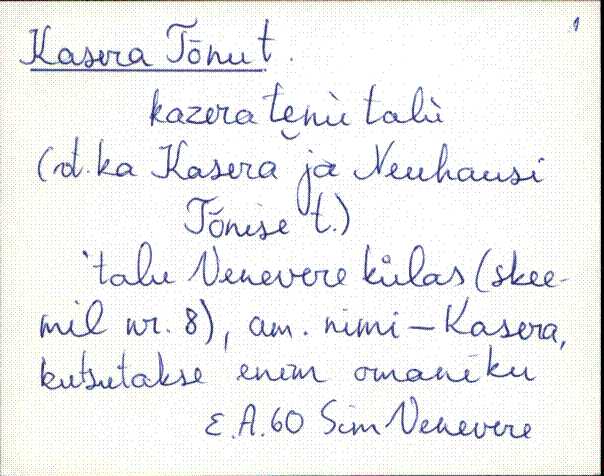 1
Kasera Tõnu t.
kazera tẹnù talù
(vt. ka Kasera ja Neuhausi
Tõnise t.)
'talu Venevere külas (skee-
mil nr. 8), am. nimi – Kasera,
kutsutakse enim omaniku
E.A. 60 Sim Venevere